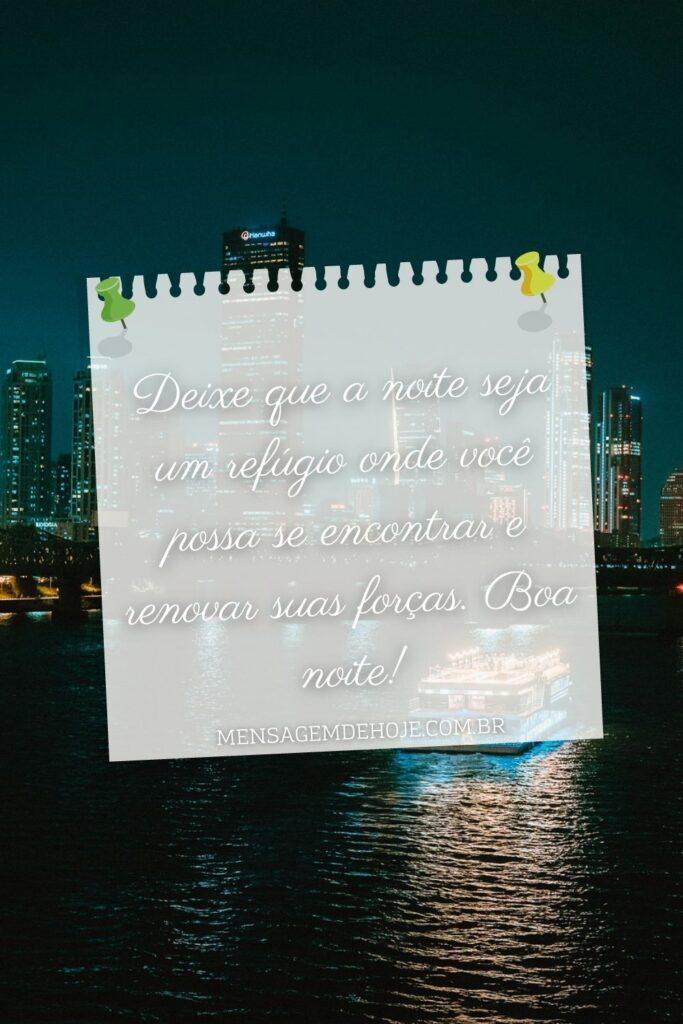 Hanwha
Deixe que a noite seja
um refúgio onde você
possa se encontrar e
renovar suas forças. Boa
noite!
MENSAGEMDEHOJE.COM.BR